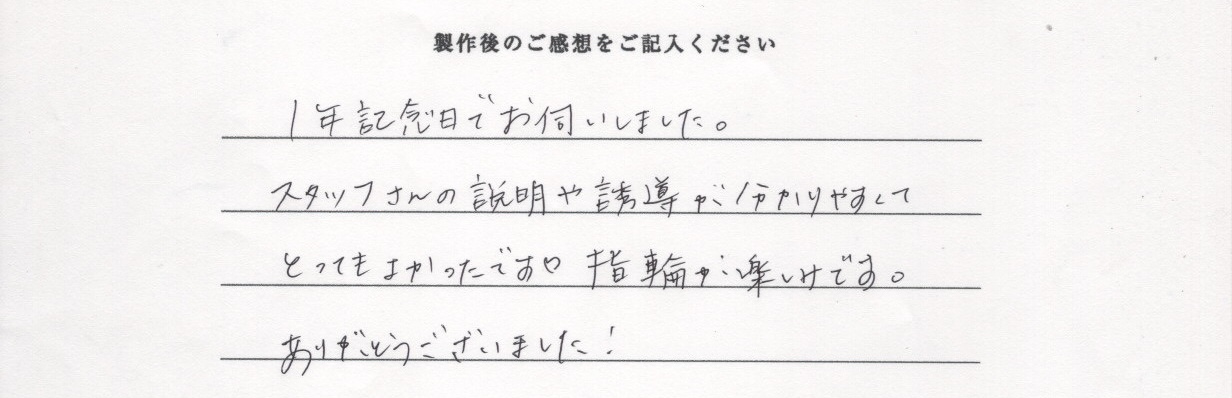 製作後のご感想をご記入ください
1年記念日でお伺いしました。
スタッフさんの説明や誘導が分かりやすくて
とってもよかったです♡ 指輪が楽しみです。
ありがとうございました!